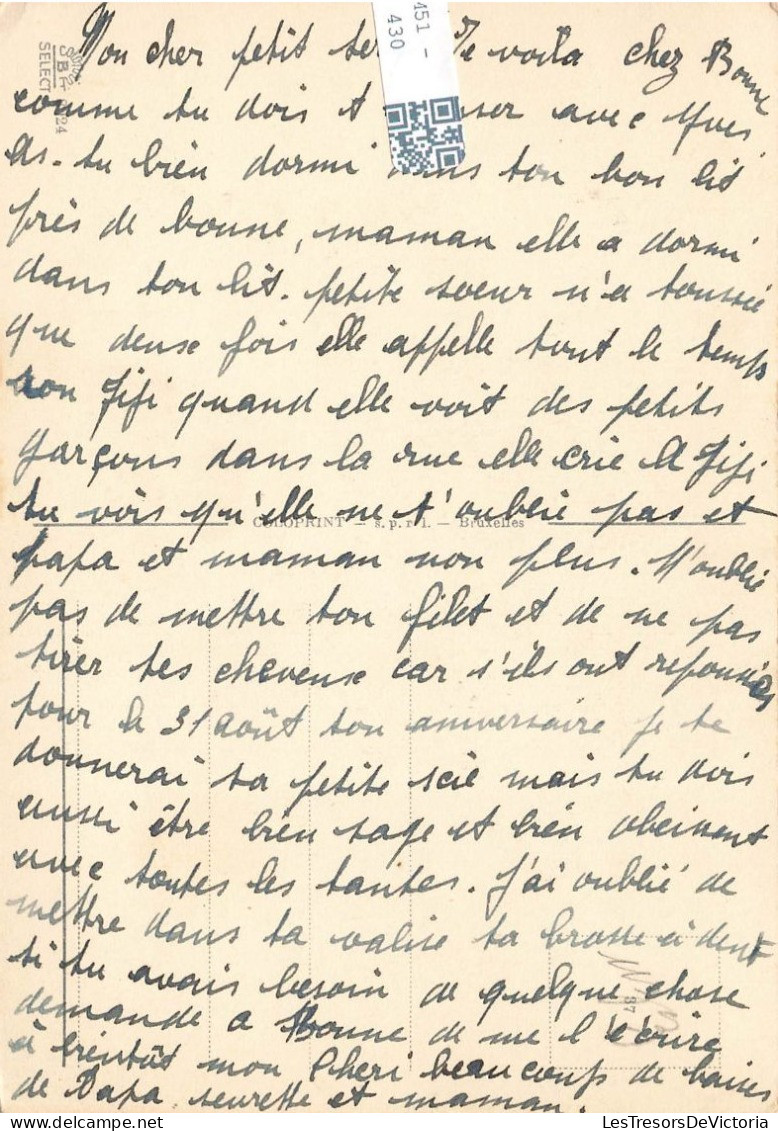 451 -
430
SBR
SELECT
24
Mon cher petit te voila chez Bonne
comme tu dois t avec Yves
As-tu bien dormi dans ton bon lit
près de bonne, maman elle a dormi
dans ton lit. petite soeur n'a toussée
que deuse fois elle appelle tout le temps
son Fifi quand elle voit des petits
garçons dans la rue elle crie A Fifi
tu vois qu'elle ne t'oublie pas et
COLOPRINT - s.p.r.l. - Bruxelles
papa et maman non plus. N'oublie
pas de mettre ton filet et de ne pas
tirer tes cheveuse car s'ils ont repoussés
pour le 31 août ton aniversaire je te
donnerai ta petite scie mais tu dois
aussi être bien sage et bien obeissent
avec toutes les tantes. J'ai oublié de
mettre dans ta valise ta brosse à dent
si tu avais besoin de quelque chose
demande a Bonne de me l'ecrire
à bientôt mon Cheri beaucoup de baises
de Papa, seurette et maman.
LesTresorsDeVictoria